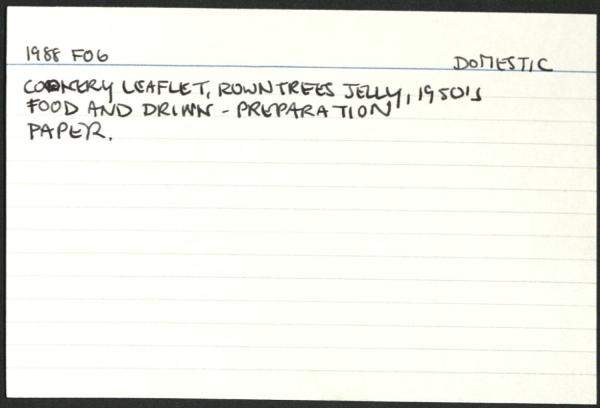 1988 F06
DOMESTIC
COOKERY LEAFLET, ROWNTREES JELLY, 1950'S
FOOD AND DRINK - PREPARATION
PAPER.